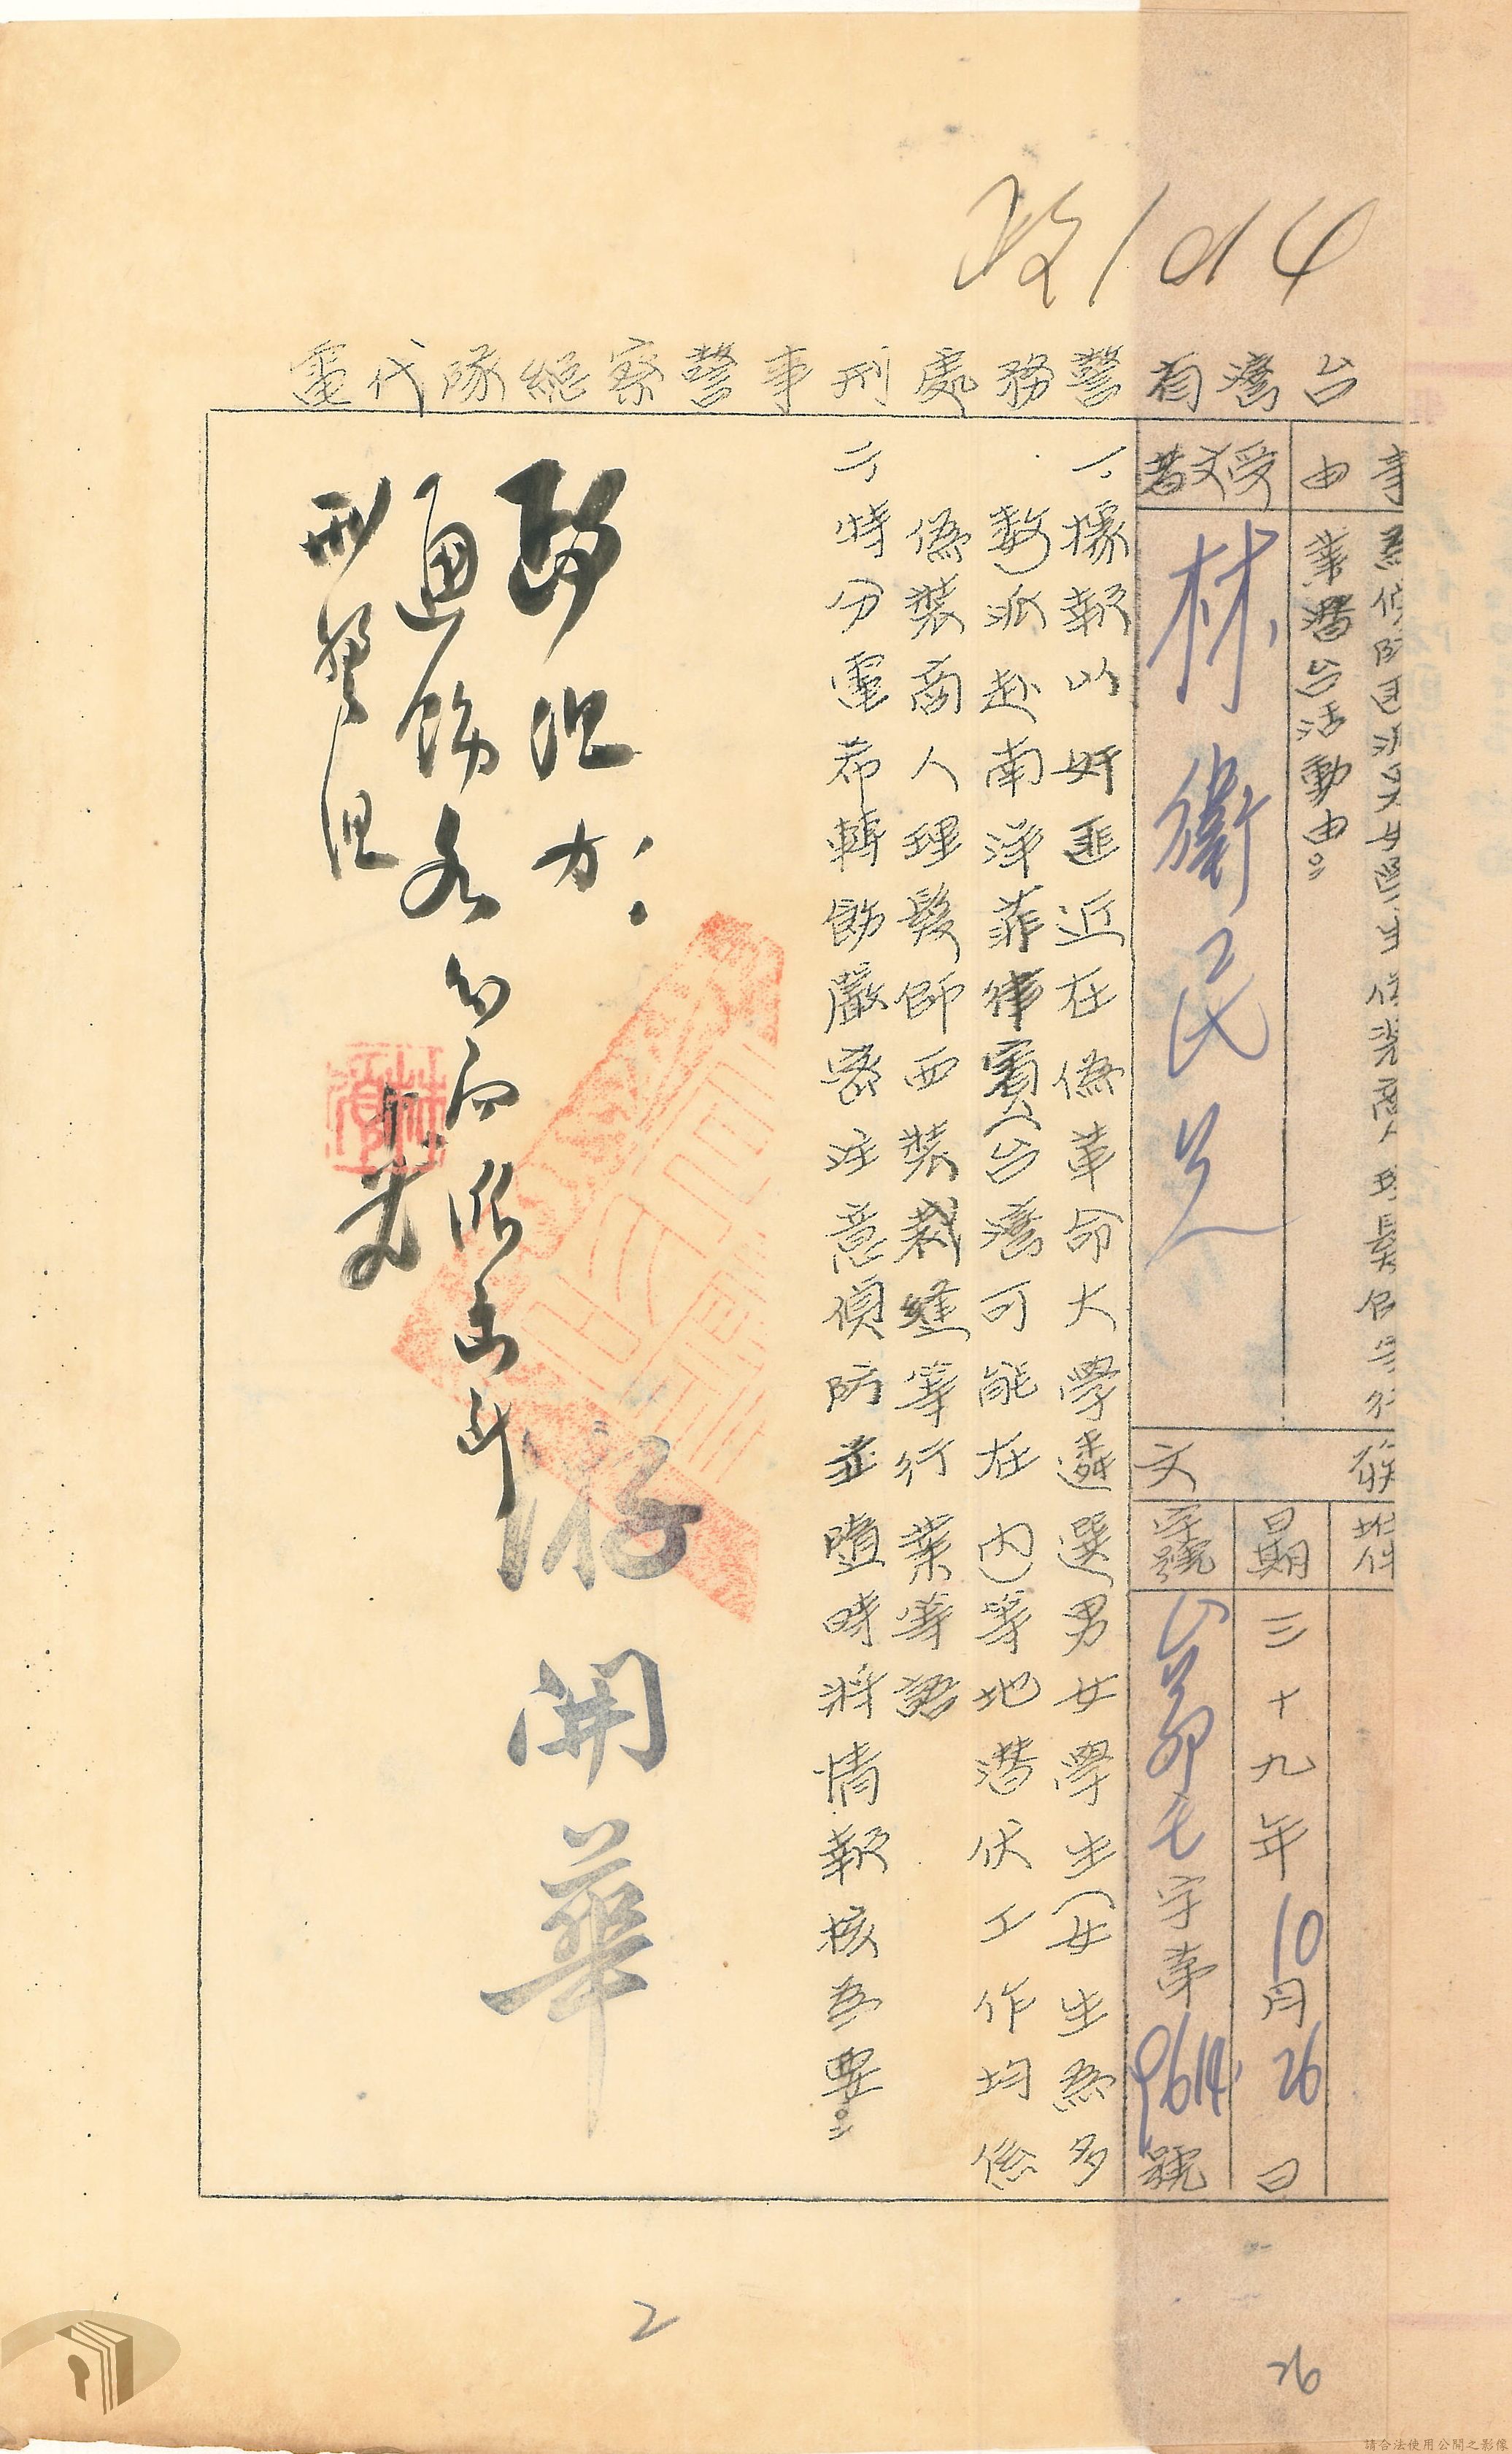 政1014
台灣省警務處刑事警察總隊代電
事由
為偵防匪派女學生偽裝商人理髮師等行
業潛台活動由。
受文者
林衛民 兄
發文
附件
日期
三十九年10月26日
字號
節毛字第9614號
一、據報以奸匪近在偽革命大學遴選男女學生（女生為多
數）派赴南洋菲律賓（台灣可能在內）等地潛伏工作均係
偽裝商人理髮師西裝裁縫等行業等語
二、特分電希轉飭嚴密注意偵防並隨時將情報核為要。
游開華
通飭各
2
26
請合法使用公開之影像